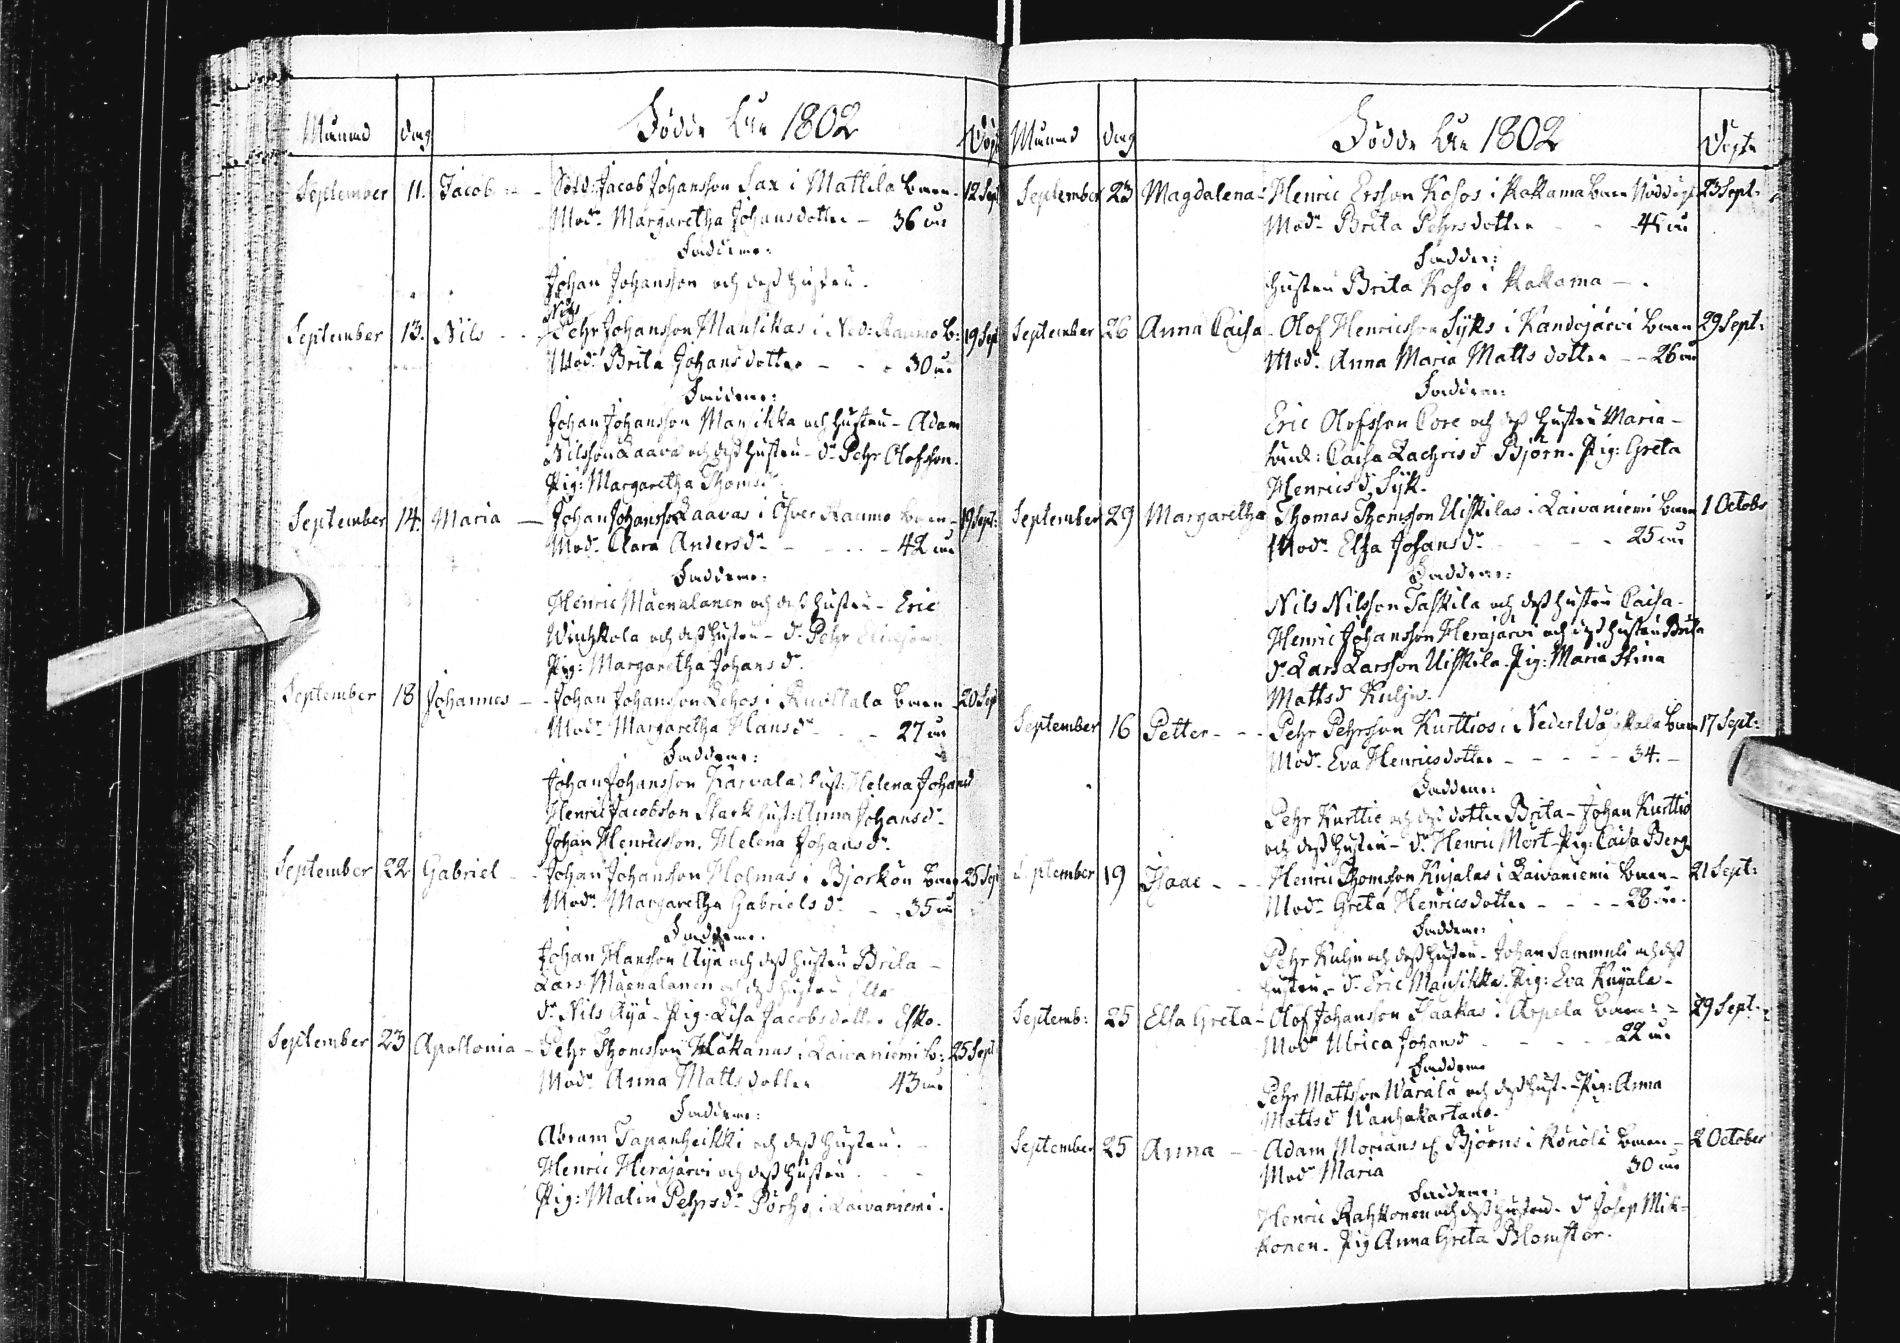 Månad dag Födde Åhr 1802 Döpt
September 11. Jacob Sold: Jacob Johansson Sax i Mattila barn 12 Sept
Modr Margaretha Johansdotter 36 åhr
Faddrar:
Johan Johansson och dess hustru.
September 13. Nils Nils Pehr Johansson Mansikas i Ned: Raumo b: 19 Sept
Modr Brita Johansdotter 30 åhr
Faddrar:
Johan Johansson Mansikka och hustru - Adam
Nilsson Laava och dess hustru - dr Pehr Olofsson.
Pig: Margaretha Thomsd.
September 14. Maria Johan Johansson Laavas i Öfver Raumo barn 19 Sept:
Modr Clara Andersdr 42 åhr
Faddrar:
Henric Mäenalanen och dess hustru - Eric
och dess hustru - dr Pehr
Pig: Margaretha Johansdr.
September 18 Johannes Johan Johansson Lehos i Ruottala barn 20 Sept
Modr Margaretha Hansdr 27 åhr
Faddrar:
Johan Johansson Karvala, hust: Helena Johansd
Henric Jacobsson Stark hust: Anna Johansdr
Johan Henricsson. Helena Johansdr.
September 22 Gabriel Johan Johansson Holmas i Björkön barn 25 Sept
Modr Margaretha Gabrielsdr 35 åhr
Faddrar.
Johan Hansson Äijä och dess hustru Brita -
Lars Mäenalanen och dess hustru
dr Nils Äijä - Pig: Lisa Jacobsdotter Esko.
September 23 Apollonia Pehr Thomsson Hakanus i Laivaniemi b: 25 Sept
Modr Anna Mattsdotter 43 åhr
Faddrar:
Abram Tapanheikki och dess hustru.
Henric Herajärvi och dess hustru.
Pig: Malin Pehrsdr Pörhö i Laivaniemi.
Månad dag Födde Åhr 1802 Döpte
September 23 Magdalena Henric Ersson Kosos i Kakama barn Nöddöpt 23 Sept:
Modr Brita Pehrsdotter 45 åhr
Fadder:
hustru Brita Koso i Kakama
September 26 Anna Caisa Olof Henricsson Syks i Kandojärvi barn 29 Sept:
Modr Anna Maria Mattsdotter 26 åhr
Faddrar:
Eric Olofsson Pore och dess hustru Maria -
Caisa Zachrisd Björn. Pig: Greta
Henricsd Syk.
September 29 Margaretha Thomas Thomsson Uiskilas i Laivaniemi barn 1 Octobr
Modr Elsa Johansdr 25 åhr
Faddrar:
Nils Nilsson Taskila och dess hustru Caisa -
Henric Johansson Herajärvi och dess hustru Brita
dr Lars Larsson Uiskila. Pig: Maria Stina
Mattsd Kuljo.
September 16 Petter Pehr Pehrsson Kurttios i Neder Wojakkala barn 17 Sept:
Modr Eva Henricsdotter 34.
Faddrar:
Pehr Kurttio och dess dotter Brita - Johan Kurttio
och dess hustru - dr Henric Mört - Pig: Caisa Berg
September 19 Isaac Henric Thomsson Kujalas i Laivaniemi barn 21 Sept:
Modr Greta Henricsdotter 28 åhr.
Faddrar:
Pehr Kuljo och dess hustru - Johan Sammuli och dess
hustru - dr Eric Mansikka. Pig: Eva Kujala -
Septemb: 25 Elsa Greta Olof Johansson Haakas i Arpela barn 29 Sept:
Modr Ulrica Johansd 22 åhr
Faddrar
Pehr Mattsson Warala och dess hust - Pig: Anna
Mattsd Wanhakartano.
September 25 Anna Adam Morians el Björns i Könölä barn 2 October
Modr Maria 30 åhr
Faddrar:
Henric Rahkonen och dess hustru - dr Josep Mik-
konen. Pig Anna Greta Blomster.